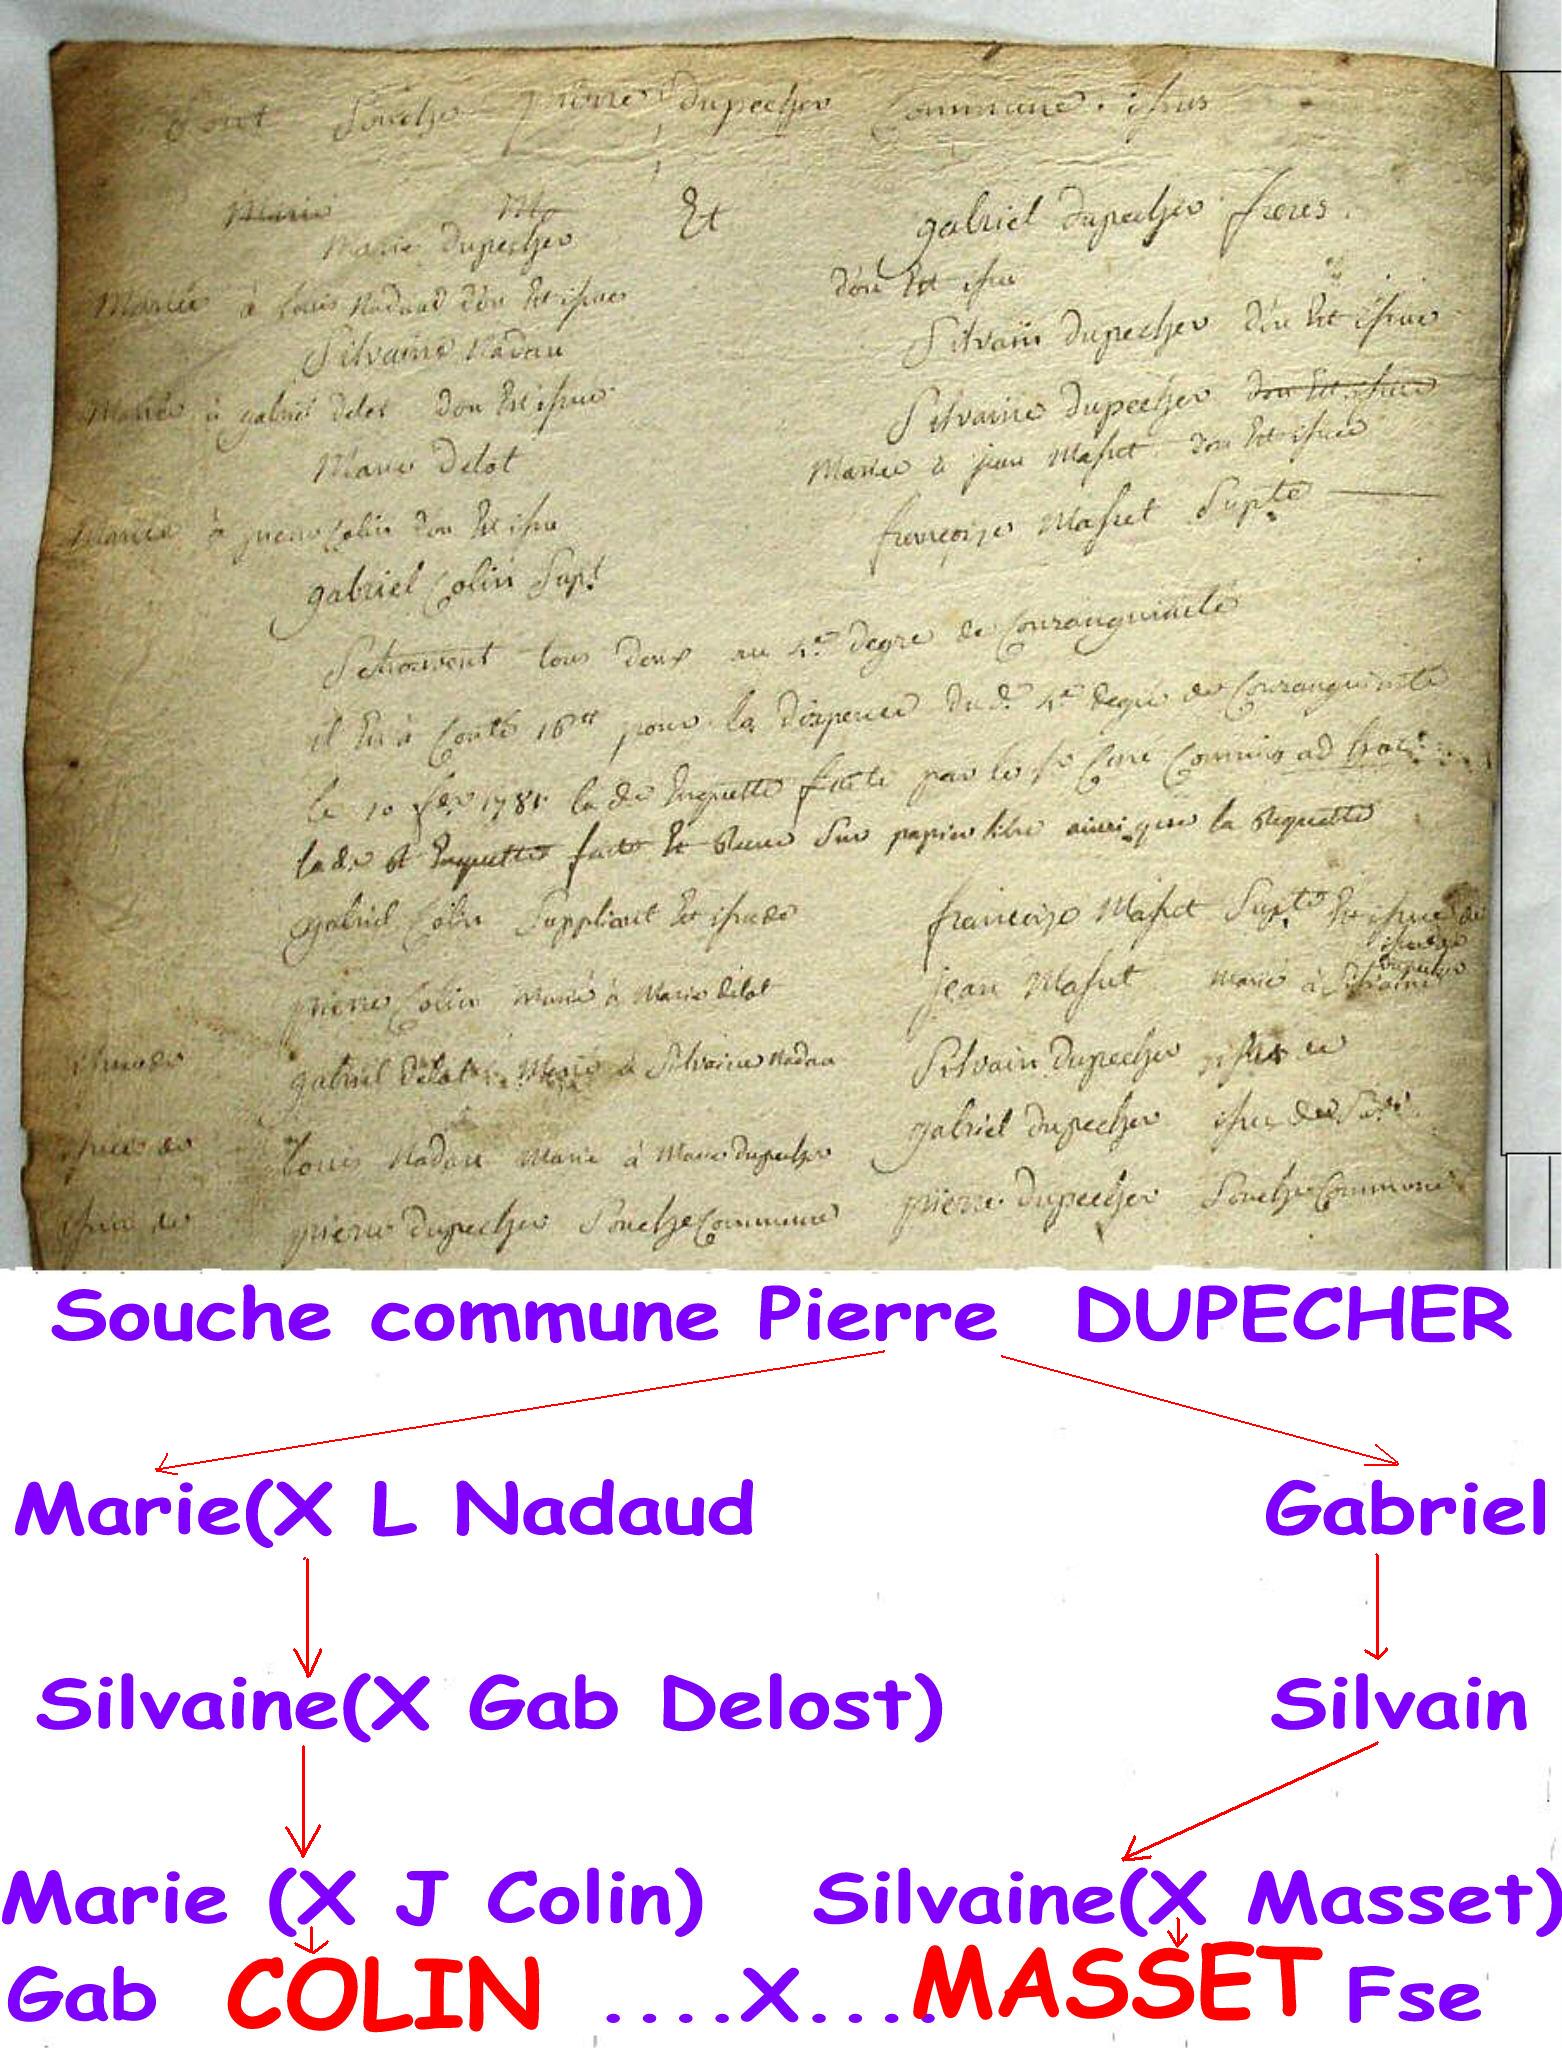 Sont Souche pierre dupecher Commune issus
Marie Ma Et gabriel dupecher freres.
Marie dupecher
Mariée à Louis Nadaud don Est issue
don Est issu
Silvaine Nadau
Silvain dupecher don Est issue
Mariée à gabriel delot don Est issue
Silvaine dupecher don Est issue
Marie delot
Mariée à jean Masset don Est issue
Mariée à pierre Colin don Est issu
françoise Masset Supte
gabriel Colin Supt
Setrouvent tous deux au 4e degré de Consanguinité
il En à Couté 16tt pour la dispence du d. 4e degré de Consanguinité
le 10 1781 la de Enquette faite par le sr Curé Commis ad
lade Enquette faite Et Sur papier libre ainsi que la Requette
gabriel Colin Suppliant Est issu de
françoise Masset Supte Est issue de
pierre Colin Marié à Marie delot
jean Masset Marié à Silvaine dupecher issue de
issue de gabriel delot Marié à Silvaine Nadau
Silvain dupecher issu de
issue de Louis Nadau Marié à Marie dupecher
gabriel dupecher issu de
issue de pierre dupecher Souche Commune
pierre dupecher Souche Commune
Souche commune Pierre DUPECHER
Marie(X L Nadaud Gabriel
Silvaine(X Gab Delost) Silvain
Marie (X J Colin) Silvaine(X Masset)
Gab COLIN ....X.... MASSET Fse